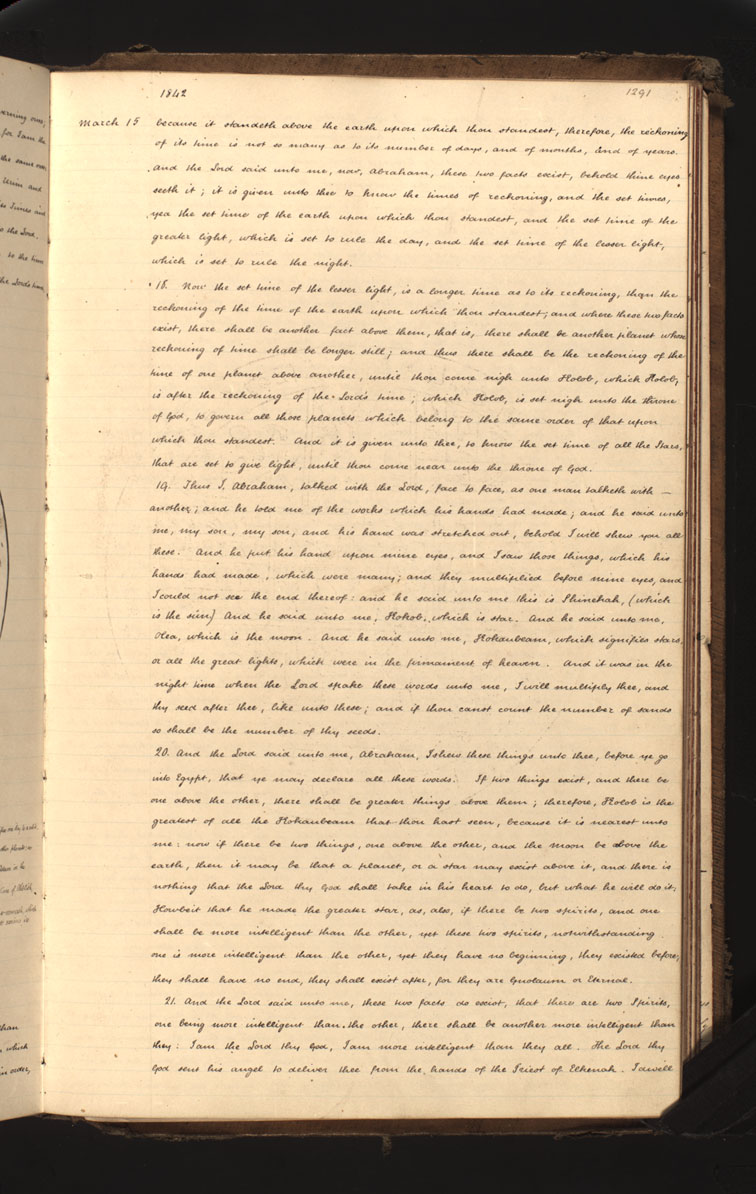 1842
1291
March 15 because it standeth above the earth upon which thou standest, therefore, the reckoning
of its time is not so many as to its number of days, and of months, and of years.
And the Lord said unto me, now, Abraham, these two facts exist, behold thine eyes
seeth it; it is given unto thee to know the times of reckoning, and the set times,
yea the set time of the earth upon which thou standest, and the set time of the
greater light, which is set to rule the day, and the set time of the lesser light,
which is set to rule the night.
18. Now the set time of the lesser light, is a longer time as to its reckoning, than the
reckoning of the time of the earth upon which thou standest; and where these two facts
exist, there shall be another fact above them, that is, there shall be another planet whose
reckoning of time shall be longer still; and thus there shall be the reckoning of the
time of one planet above another, until thou come nigh unto Kolob, which Kolob,
is after the reckoning of the Lord's time; which Kolob, is set nigh unto the throne
of God, to govern all those planets which belong to the same order of that upon
which thou standest. And it is given unto thee, to know the set time of all the Stars,
that are set to give light, until thou come near unto the throne of God.
19. Thus I, Abraham, talked with the Lord, face to face, as one man talketh with —
another; and he told me of the works which his hands had made; and he said unto
me, my son, my son, and his hand was stretched out, behold I will shew you all
these. And he put his hand upon mine eyes, and I saw those things, which his
hands had made, which were many; and they multiplied before mine eyes, and
I could not see the end thereof: and he said unto me this is Shinehah, (which
is the sun) And he said unto me, Kokob, which is star. And he said unto me,
Olea, which is the moon. And he said unto me, Kokaubeam, which signifies stars,
or all the great lights, which were in the firmament of heaven. And it was in the
night time when the Lord spake these words unto me, I will multiply thee, and
thy seed after thee, like unto these; and if thou canst count the number of sands
so shall be the number of thy seeds.
20. And the Lord said unto me, Abraham, I shew these things unto thee, before ye go
into Egypt, that ye may declare all these words. If two things exist, and there be
one above the other, there shall be greater things above them; therefore, Kolob is the
greatest of all the Kokaubeam that thou hast seen, because it is nearest unto
me: now if there be two things, one above the other, and the moon be above the
earth, then it may be that a planet, or a star may exist above it, and there is
nothing that the Lord thy God shall take in his heart to do, but what he will do it,
Howbeit that he made the greater star, as, also, if there be two spirits, and one
shall be more intelligent than the other, yet these two spirits, notwithstanding
one is more intelligent than the other, yet they have no beginning, they existed before;
they shall have no end, they shall exist after, for they are Gnolaum or Eternal.
21. And the Lord said unto me, these two facts do exist, that there are two Spirits,
one being more intelligent than the other, there shall be another more intelligent than
they: I am the Lord thy God, I am more intelligent than they all. The Lord thy
God sent his angel to deliver thee from the hands of the Priest of Elkenah. I dwell